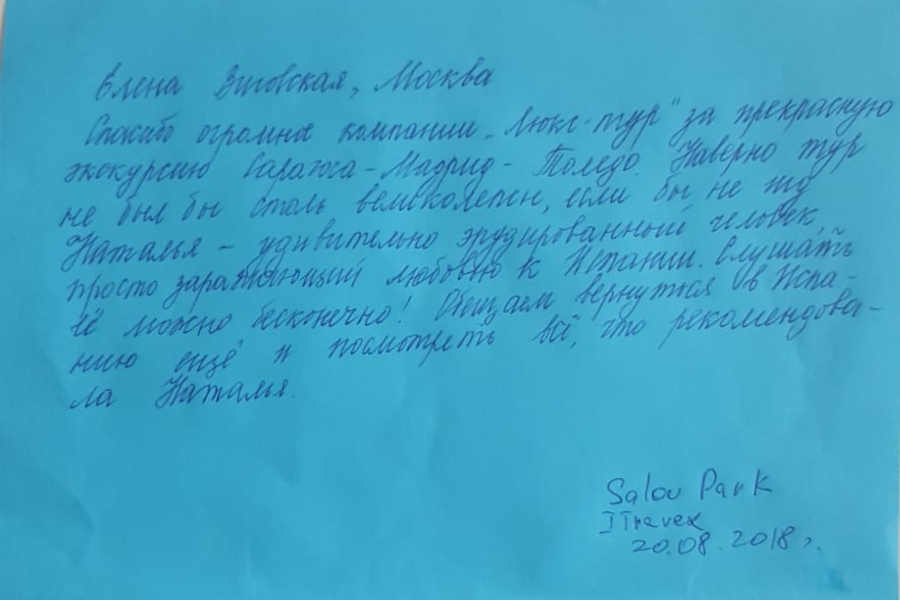 Елена Зиговская, Москва
Спасибо огромное компании „Люкс-тур" за прекрасную
экскурсию Сарагоса-Мадрид-Толедо. Наверно тур
не был бы столь великолепен, если бы не гид
Наталья – удивительно эрудированный человек,
просто заражающий любовью к Испании. Слушать
её можно бесконечно! Обещаем вернуться в Испа-
нию ещё и посмотреть всё, что рекомендова-
ла Наталья.
Salou Park
ITravex
20.08.2018 г.